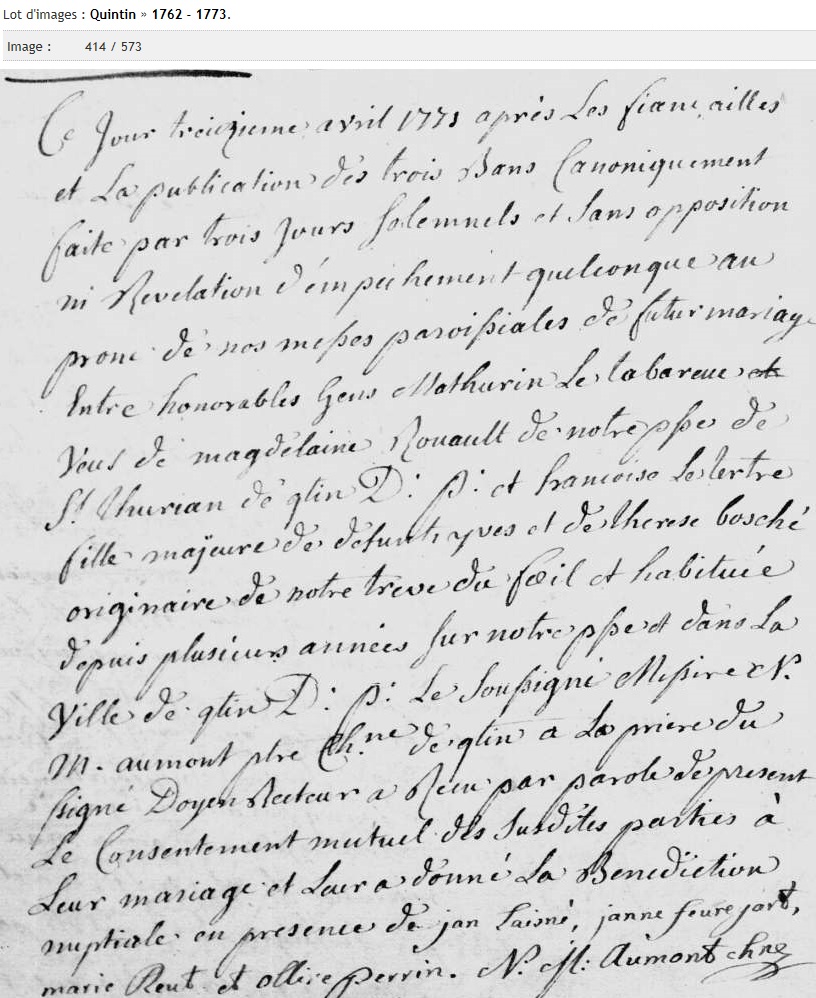 Lot d'images : Quintin » 1762 - 1773.
Image : 414 / 573
Ce Jour treizieme avril 1771 après Les fiancailles
et La publication des trois Bans Canoniquement
faite par trois Jours solemnels et sans opposition
ni Revelation d'empechement quelconque au
prone de nos messes paroissiales de futur mariage
Entre honorables Gens Mathurin Le
Veuf de magdelaine Rouault de notre psse de
St Thurian de qtin D: p: et francoise Le tertre
fille majeure de defunts yves et de therese bosché
originaire de notre treve du foeil et habituée
depuis plusieurs années sur notre psse et dans La
Ville de qtin D: p: Le soussigné Missire N.
M. aumont ptre Ch.ne de qtin a La priere du
signé Doyen Recteur a Recu par parole de present
Le Consentement mutuel des susdites parties à
Leur mariage et Leur a donné La Benediction
nuptiale en presence de jan Laisné, janne
marie et perrin. N. M: Aumont chne